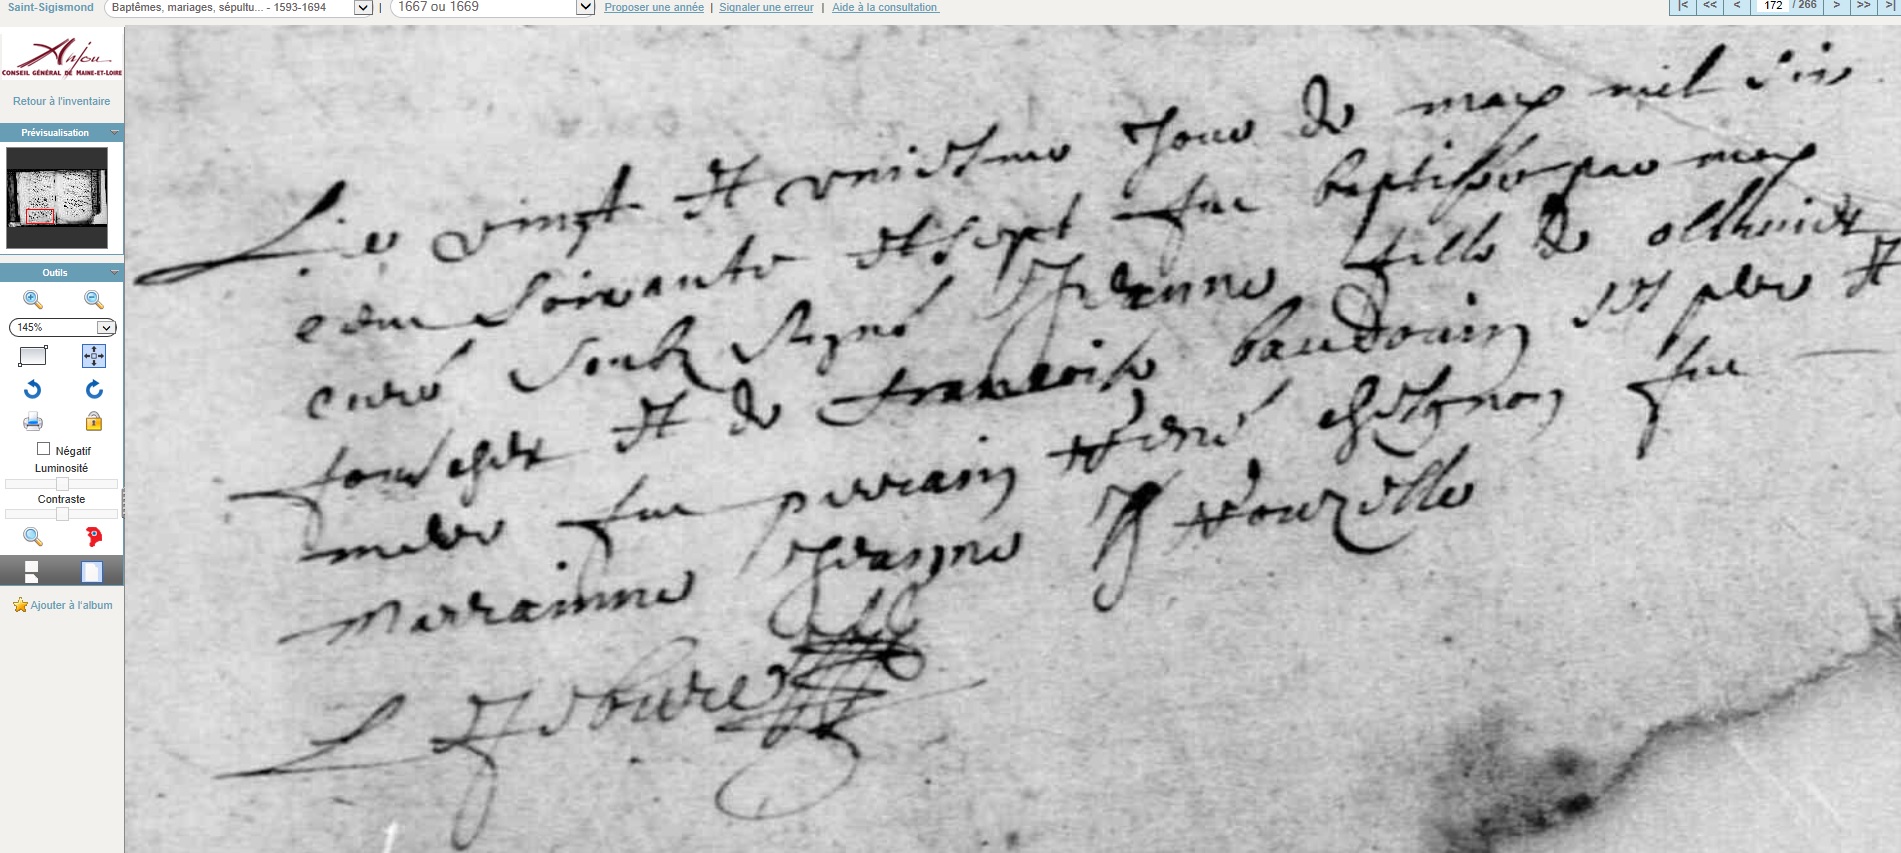 Saint-Sigismond
Baptêmes, mariages, sépultu... - 1593-1694
|
1667 ou 1669
Proposer une année | Signaler une erreur | Aide à la consultation
|<
<<
<
172 / 266
>
>>
>|
Anjou
CONSEIL GÉNÉRAL DE MAINE-ET-LOIRE
Retour à l'inventaire
Prévisualisation
Outils
145%
Négatif
Luminosité
Contraste
Ajouter à l'album
Le vingt et jour de may mil six
cent soixante et sept fut baptisée par moy
curé soubz signé Jeanne fille de
et de francoise baudouin ses pere et
mere fut parrain René fut
marraine Jeanne